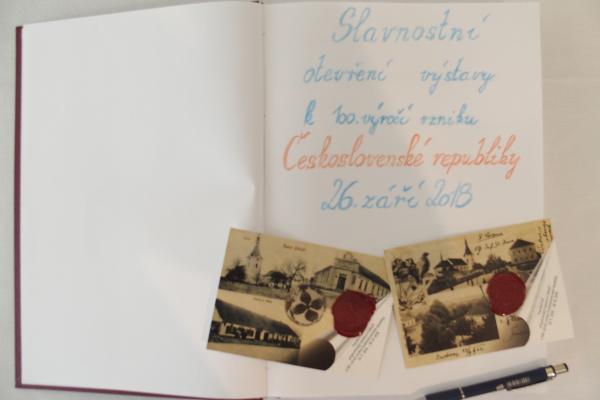 Slavnostní
otevření výstavy
k 100. výročí vzniku
Československé republiky
26. září 2018